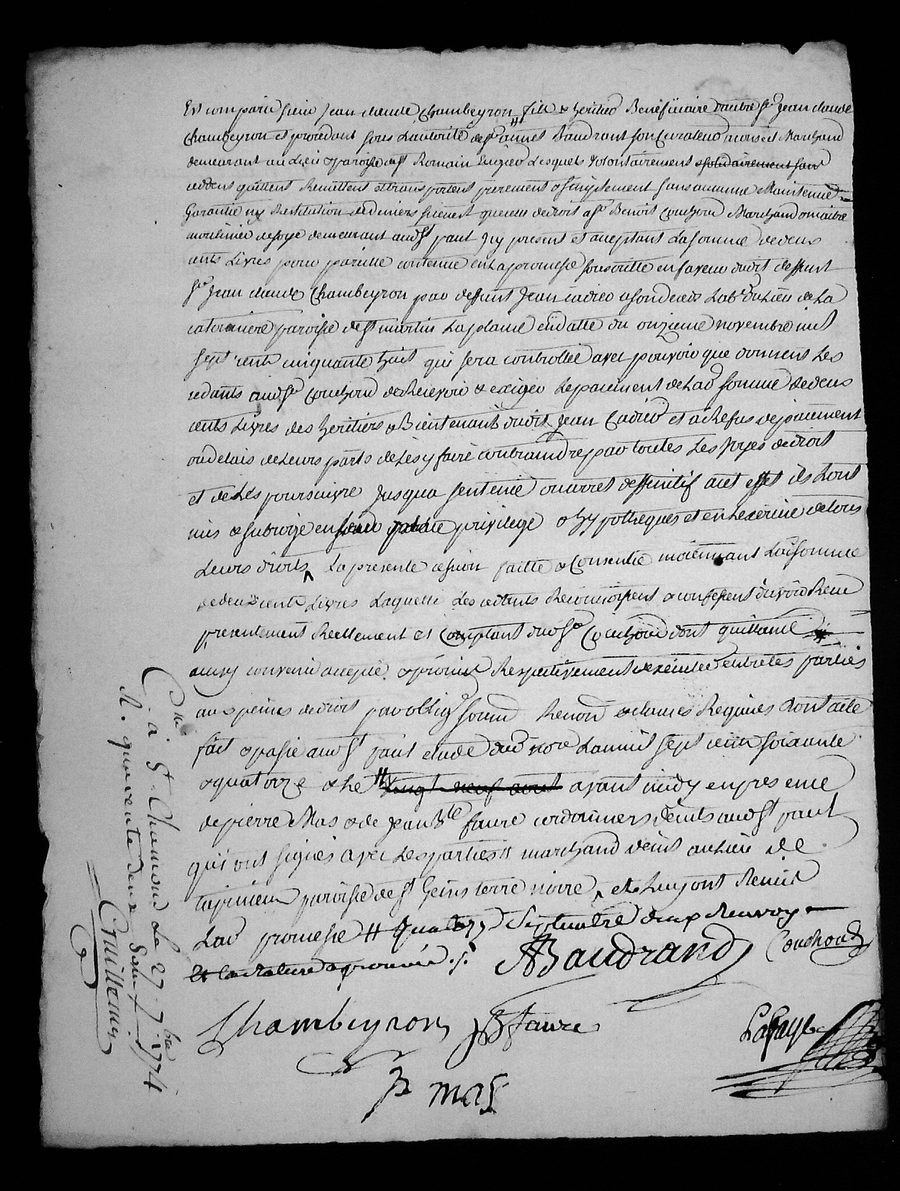 Est comparu sieur Jean claude Chambeyron fils & heritier Beneficiaire d'autre sr Jean claude
Chambeyron et procedant sous L'autorité de sr annet Baudrand son Curateur mois et Marchand
demeurant au Lieu & paroisse de st Romain Lesquels Volontairement solidairement font
cedent quittent Remettent et transportent purement & simplement sans aucune Maintenue
Garantie ny Restitution de deniers si ce n'est que de droit a sr Benoit Couchoud Marchand & maitre
moulinier de soye demeurant aud st paul Icy present et acceptant La somme de deux
cents Livres pour pareille contenue en La promesse souscritte en faveur dudit deffunt
sr Jean claude Chambeyron par deffunt Jean cadier Lab du Lieu de La
paroisse de st martin La plaine en datte du onzieme novembre mil
sept cent cinquante huit qui sera controllée avec pouvoir que donnent Les
cedants aud sr Couchoud de Recevoir & exiger Le paiement de Lad somme de deux
cents Livres des heritiers & Bientenants dudit Jean Cadier et a deffaut de paiement
ou delais de Leurs parts de Les y faire contraindre par toutes Les Voyes de droit
et de Les poursuivre Jusqua sentence ou arret deffinitif a cet effet ils L'ont
mis & subrogé en privilege & hypotheques et en Lexercice de tous
Leurs droits La presente cession faitte & Consentie moiennant La somme
de deux cents Livres Laquelle Les cedants Reconnoissent & confessent d'avoir Recu
presentement Reellement et Comptant dud sr Couchoud dont quittance
ainsy convenu accepté & promis Respectivement d'executer entre Les parties
aux peines de droit par oblig soum Renon & clauses Requises dont acte
fait & passé aud st paul etude dud nore L'an mil sept cent soixante
& quatorze & Le vingt neuf aout avant midy en presence
de pierre Mas & de Jean Bte faure cordonniers de aud st paul
qui ont signés avec Les parties marchand au Lieu de
paroisse de st Geins terre noire et Luy ont Remis
Lad promesse quatorze Septembre deux Renvoys
et La Rature aprouvée
ABaudrand Couchoud
Chambeyron JB faure Lafaye
p mas
C.lé a St Chamond Le 27 7bre 1774
R. quarante deux sous
Guillemin